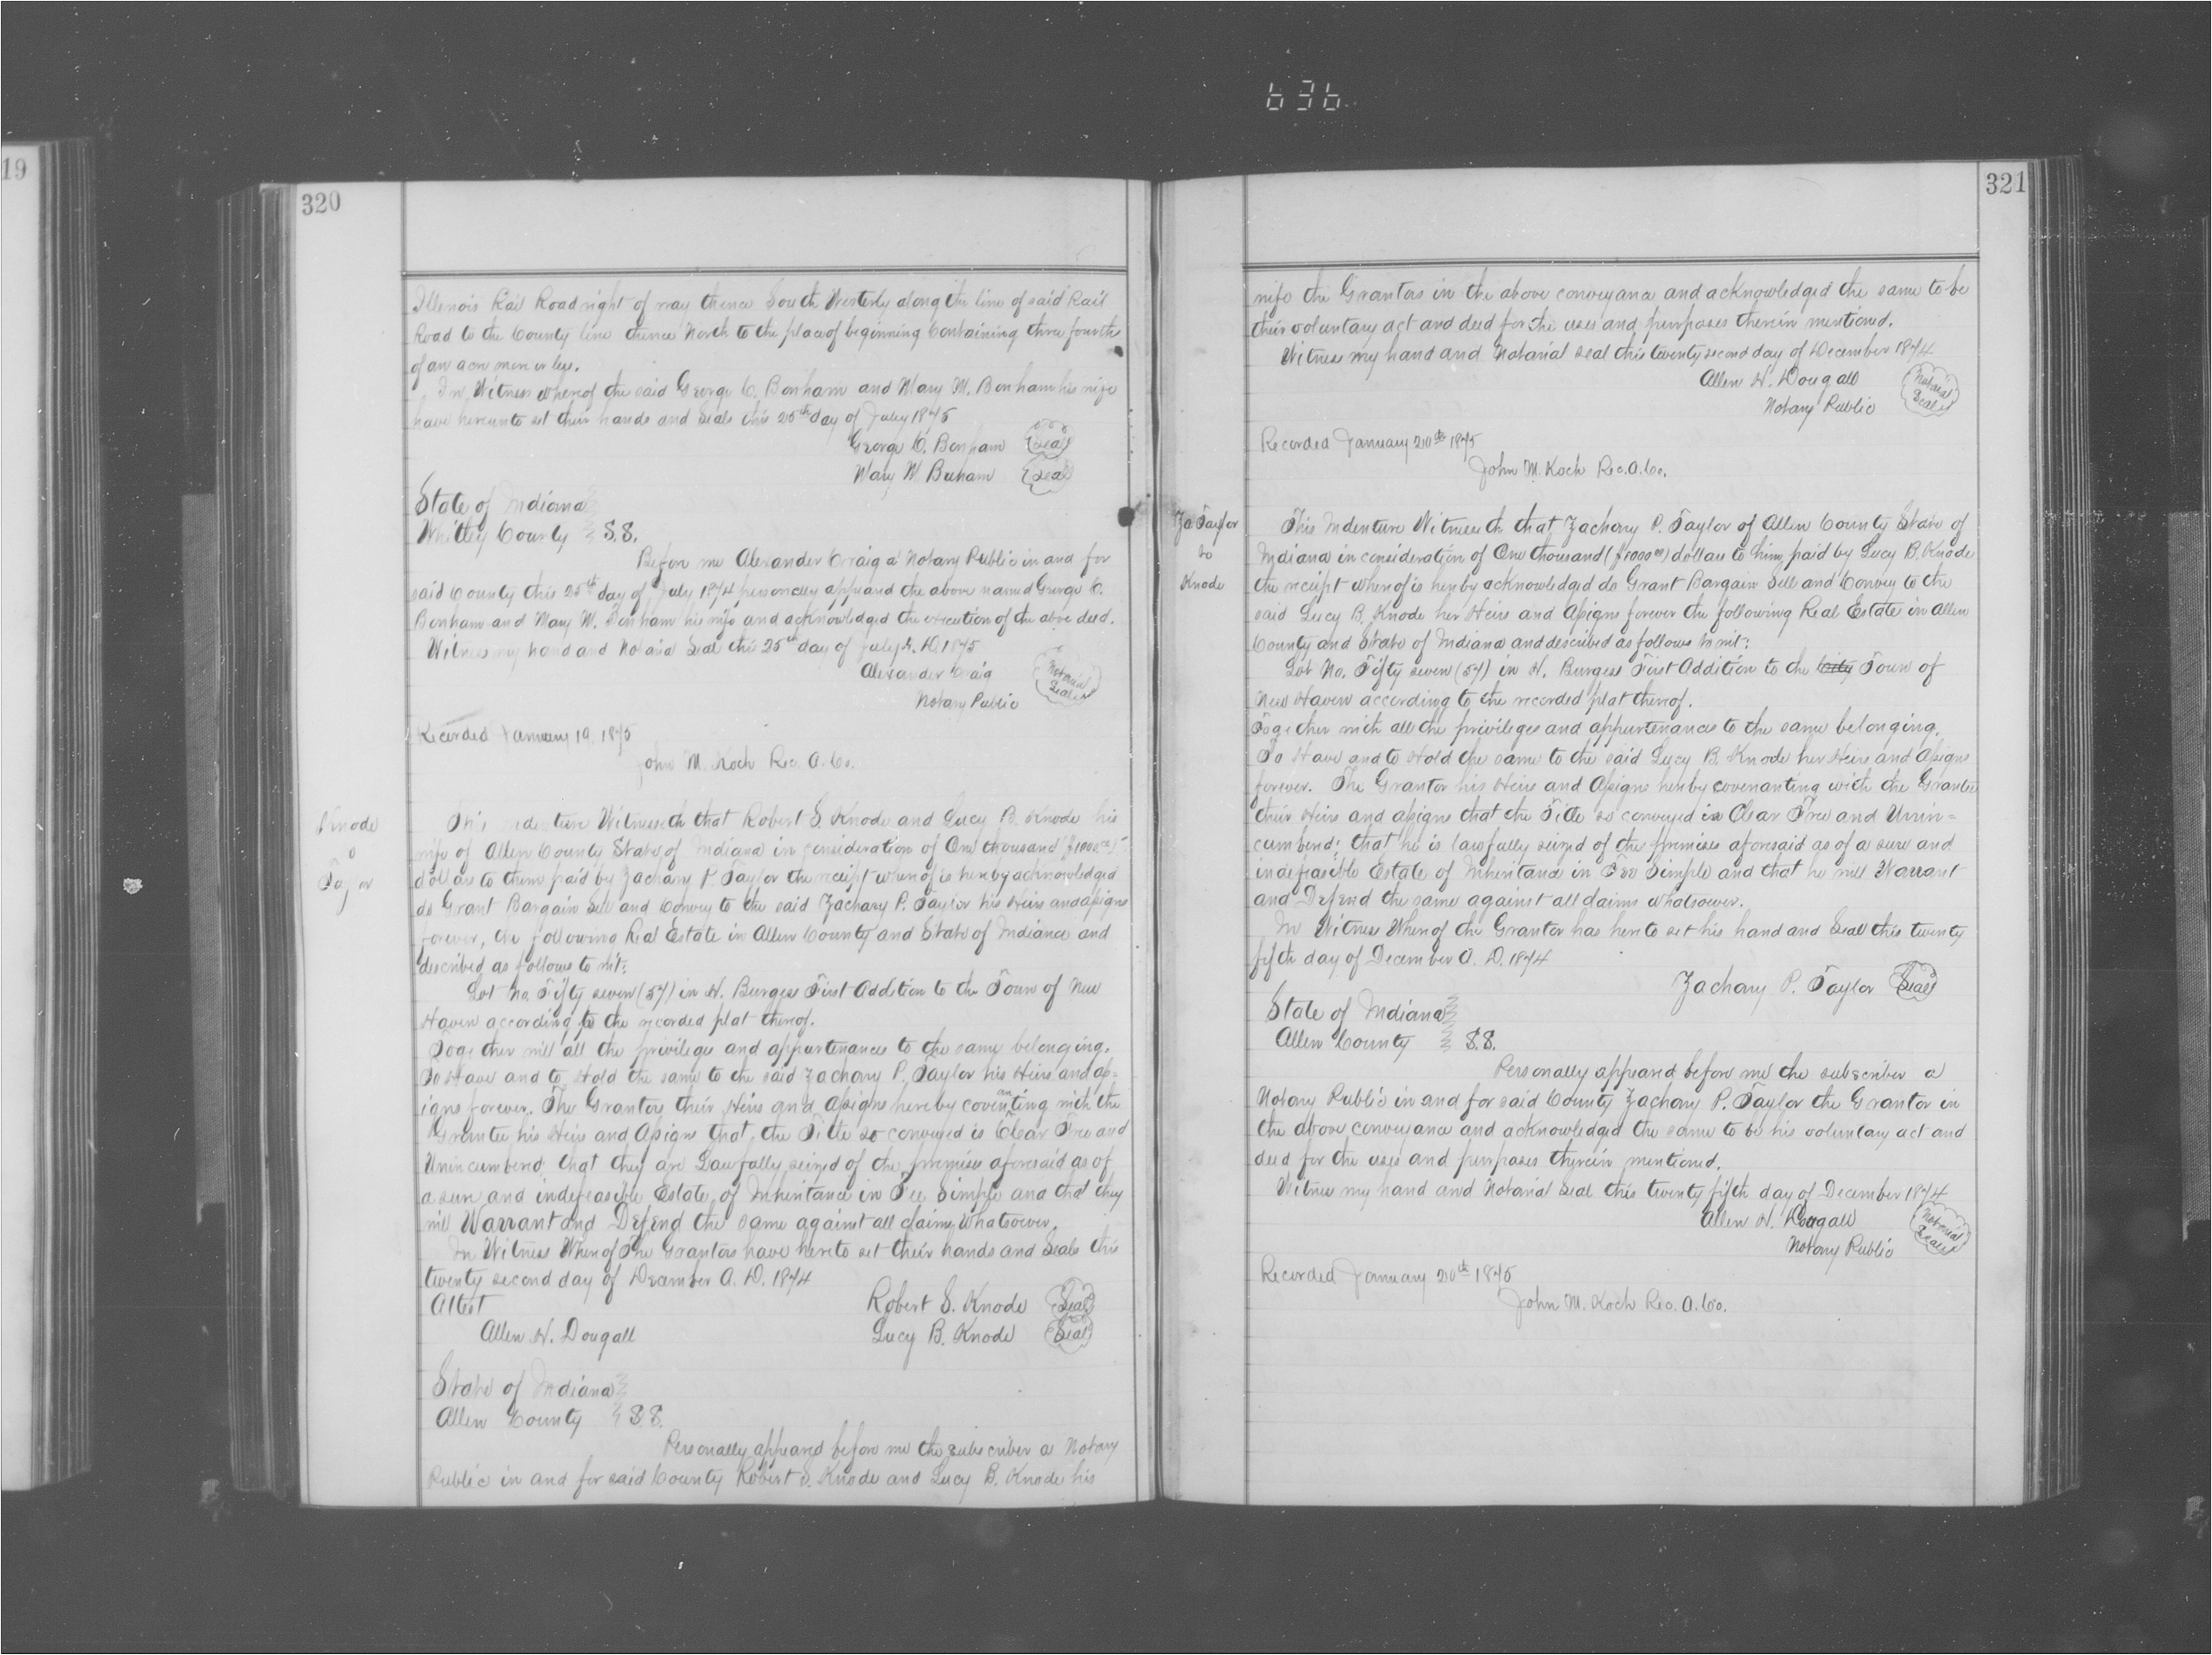 636
19
320
Illinois Rail Road right of way thence South Westerly along the line of said Rail
Road to the County line thence North to the place of beginning Containing three fourths
of an acre more or less.
In Witness whereof the said George C. Bonham and Mary M. Bonham his wife
have hereunto set their hands and seals this 25th day of July 1875
George C. Bonham (Seal)
Mary M Bonham (Seal)
State of Indiana
Whitley County } S.S.
Before me Alexander Craig a Notary Public in and for
said County this 25th day of July 1874 personally appeared the above named George C.
Bonham and Mary M. Bonham his wife and acknowledged the execution of the above deed.
Witness my hand and Notarial Seal this 25th day of July A.D. 1875
Alexander Craig
Notary Public
Notarial Seal
Recorded January 19 1875
John M. Koch Rec. A. Co.
Knode
o
Taylor
This Indenture Witnesseth that Robert S. Knode and Lucy B. Knode his
wife of Allen County State of Indiana in consideration of One thousand ($1000 00)
dollars to them paid by Zachary P. Taylor the receipt whereof is hereby acknowledged
do Grant Bargain Sell and Convey to the said Zachary P. Taylor his Heirs and assigns
forever, the following Real Estate in Allen County and State of Indiana and
described as follows to wit:
Lot No. Fifty seven (57) in H. Burgess First Addition to the Town of New
Haven according to the recorded plat thereof.
Together will all the privileges and appurtenances to the same belonging.
To Have and to Hold the same to the said Zachary P. Taylor his Heirs and ass=
igns forever. The Grantors their Heirs and Assigns hereby covenanting with the
Grantee his Heirs and Assigns that the Title so conveyed is Clear Free and
Unincumbered, that they are Lawfully seized of the premises aforesaid as of
a sure and indefeasible Estate of Inheritance in Fee Simple and that they
will Warrant and Defend the same against all claims Whatsoever.
In Witness Whereof The Grantors have hereto set their hands and Seals this
twenty second day of December A.D. 1874
Attest Robert S. Knode (Seal)
Allen H. Dougall Lucy B. Knode (Seal)
State of Indiana
Allen County } S.S.
Personally appeared before me the subscriber a Notary
Public in and for said County Robert S. Knode and Lucy B. Knode his
321
wife the Grantors in the above conveyance and acknowledged the same to be
their voluntary act and deed for the uses and purposes therein mentioned.
Witness my hand and Notarial Seal this twenty second day of December 1874
Allen H. Dougall
Notary Public
Notarial Seal
Recorded January 20th 1875
John M. Koch Rec. A. Co.
Za Taylor
to
Knode
This Indenture Witnesseth that Zachary P. Taylor of Allen County State of
Indiana in consideration of One thousand ($1000 00) dollars to him paid by Lucy B. Knode
the receipt whereof is hereby acknowledged do Grant Bargain Sell and Convey to the
said Lucy B. Knode her Heirs and Assigns forever the following Real Estate in Allen
County and State of Indiana and described as follows to wit:
Lot No. Fifty seven (57) in H. Burgess First Addition to the City Town of
New Haven according to the recorded plat thereof.
Together with all the privileges and appurtenances to the same belonging.
To Have and to Hold the same to the said Lucy B. Knode her Heirs and Assigns
forever. The Grantor his Heirs and Assigns hereby covenanting with the Grantee
their Heirs and assigns that the Title so conveyed is Clear Free and Unin=
cumbered; that he is lawfully seized of the premises aforesaid as of a sure and
indefeasible Estate of Inheritance in Fee Simple and that he will Warrant
and Defend the same against all claims whatsoever.
In Witness Whereof the Grantor has hereto set his hand and Seal this twenty
fifth day of December A.D. 1874
Zachary P. Taylor (Seal)
State of Indiana
Allen County } S.S.
Personally appeared before me the subscriber a
Notary Public in and for said County Zachary P. Taylor the Grantor in
the above conveyance and acknowledged the same to be his voluntary act and
deed for the uses and purposes therein mentioned.
Witness my hand and Notarial Seal this twenty fifth day of December 1874
Allen H. Dougall
Notary Public
Notarial Seal
Recorded January 20th 1875
John M. Koch Rec. A. Co.